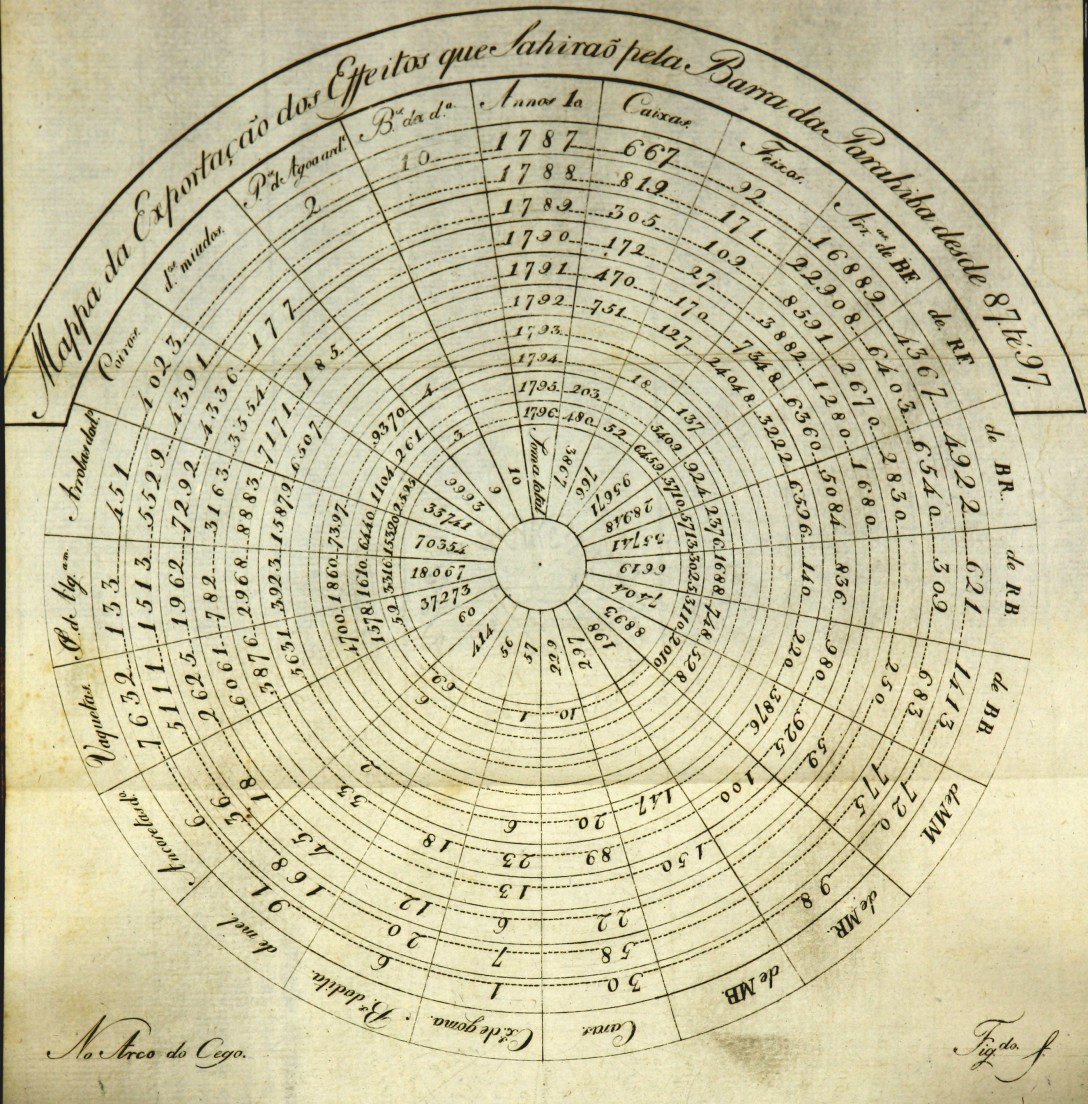 Mappa da Exportação dos Effeitos que Sahiraõ pela Barra da Parahiba desde 87. té 97.
Annos 1a
1787
1788
1789
1790
1791
1792
1793
1794
1795
1796
Soma total
Caixas.
667
819
305
172
470
751
203
480
3867
Feixos.
92
171
102
27
170
127
18
52
766
Arr.as de BF.
16889
22908
8591
3882
7348
24048
137
5409
6459
95671
de RF.
4367
6403
2670
1280
6360
3222
924
3710
28948
de BR.
4922
6540
2830
1680
5084
6596
2376
5713
35741
de RB.
621
309
836
140
1688
3025
6619
de BB.
1413
683
250
980
220
748
3110
7404
de MM
720
775
59
925
3876
528
2010
8893
de MR.
98
100
198
de MB.
150
147
297
Caras.
30
58
22
89
20
10
229
Cs. de goma.
1
7
6
13
23
6
1
57
Bs. dodita.
6
20
12
18
56
de mel.
91
168
45
33
2
6
69
414
6
36
18
60
Vaquetas.
7632
5111
2625
6061
3876
5631
4700
1578
59
37273
P. de Vig.am
133
1513
1962
782
2968
3923
1860
1610
3316
18067
Arrobas dad.os
451
5529
7292
3163
8883
15879
7397
6440
15320
70354
Couros.
4023
4391
4336
3554
7171
6507
1104
2595
33741
d.os miudos.
177
185
9370
261
9993
P.as d'Agoa ard.e
2
4
3
9
B.s da d.a
10
10
No Arco do Cego.
Fig.do f.